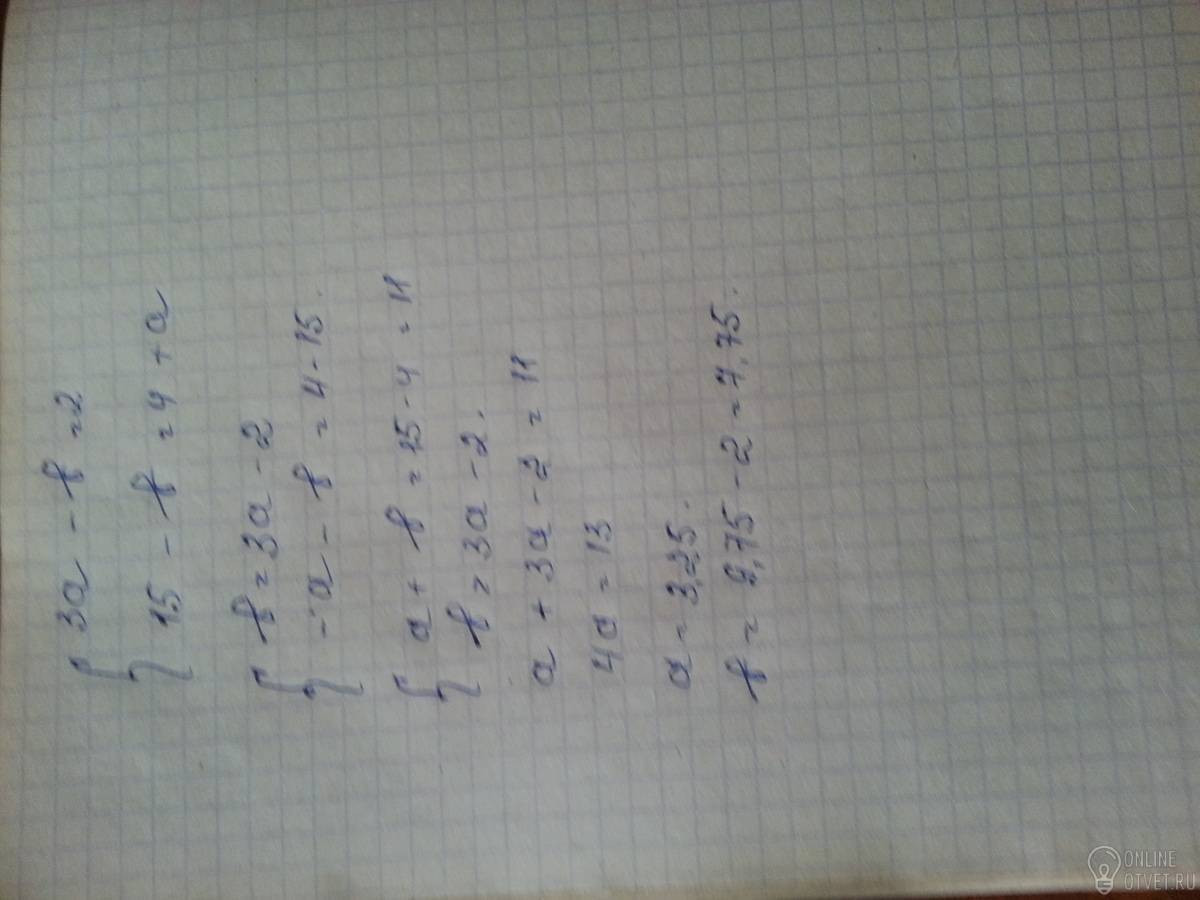 { 3a - b = 2
15 - b = 4 + a
{ b = 3a - 2
-a - b = 4 - 15.
{ a + b = 15 - 4 = 11
b = 3a - 2.
a + 3a - 2 = 11
4a = 13
a = 3,25.
b = 9,75 - 2 = 7,75.
ONLINE
OTVET.RU